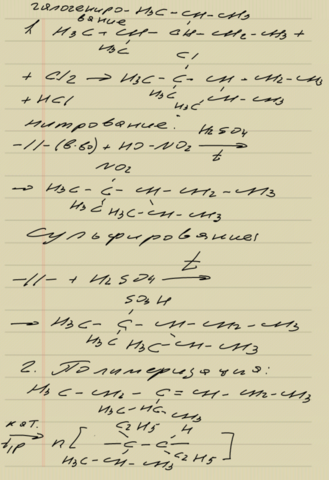 галогениро- H3C-CH-CH3
вание
1 H3C-CH-CH-CH2-CH3 +
H3C
Cl
+ Cl2 → H3C-C-CH-CH2-CH3
H3C H3C-CH-CH3
+ HCl
нитрование:
-//- (в-во) + HO-NO2 H2SO4 t →
NO2
→ H3C-C-CH-CH2-CH3
H3C H3C-CH-CH3
Сульфирование:
-//- + H2SO4 t →
SO3H
→ H3C-C-CH-CH2-CH3
H3C H3C-CH-CH3
2. Полимеризация:
H3C-CH2-C=CH-CH2-CH3
H3C-HC-CH3
кат. t,p → n[ C2H5 H
-C-C- ]
H3C-CH-CH3 C2H5